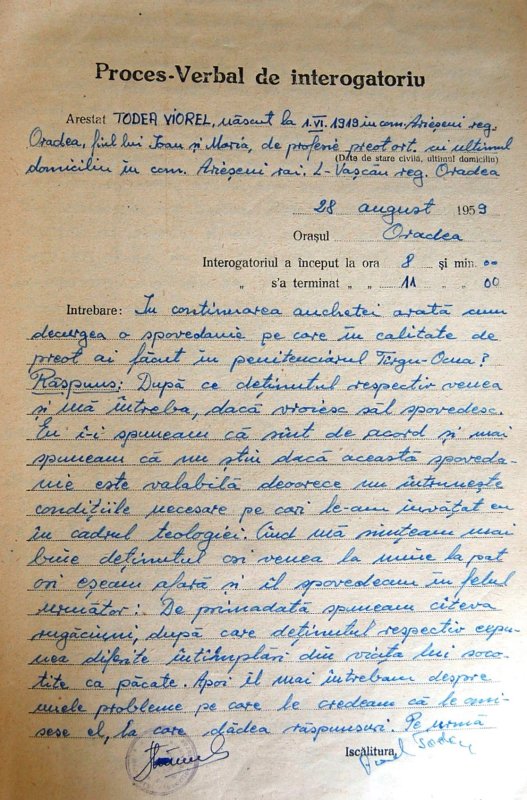 Proces-Verbal de interogatoriu
Arestat TODEA VIOREL, născut la 1.VI.1919 in com. Arieșeni reg.
Oradea, fiul lui Ioan și Maria, de profesie preot ort. cu ultimul
(Date de stare civilă, ultimul domiciliu)
domiciliu în com. Arieșeni rai. L-Vașcău reg. Oradea
28 august 1959
Orașul Oradea
Interogatoriul a început la ora 8 și min. 00
„ s'a terminat „ „ 11 „ „ 00
Intrebare: In continuarea anchetei arată cum
decurgea o spovedanie pe care în calitate de
preot ai făcut în penitenciarul Tîrgu-Ocna?
Răspuns: După ce deținutul respectiv venea
și mă întreba, dacă vroiesc săl spovedesc.
Eu i-i spuneam că sînt de acord și mai
spuneam că nu știu dacă această spoveda-
nie este valabilă deoorece nu întrunește
condițiile necesare pe cari le-am învățat eu
în cadrul teologiei. Cînd mă simțeam mai
bine deținutul ori venea la mine la pat
ori eșeam afară și îl spovedeam în felul
următor: De primadată spuneam cîteva
rugăciuni, după care deținutul respectiv expu-
nea diferite întîmplări din viața lui soco-
tite ca păcate. Apoi îl mai întrebam despre
unele probleme pe care le credeam că le omi-
sese el, la care dădea răspunsuri. Pe urmă
Iscălitura,
Viorel Todea